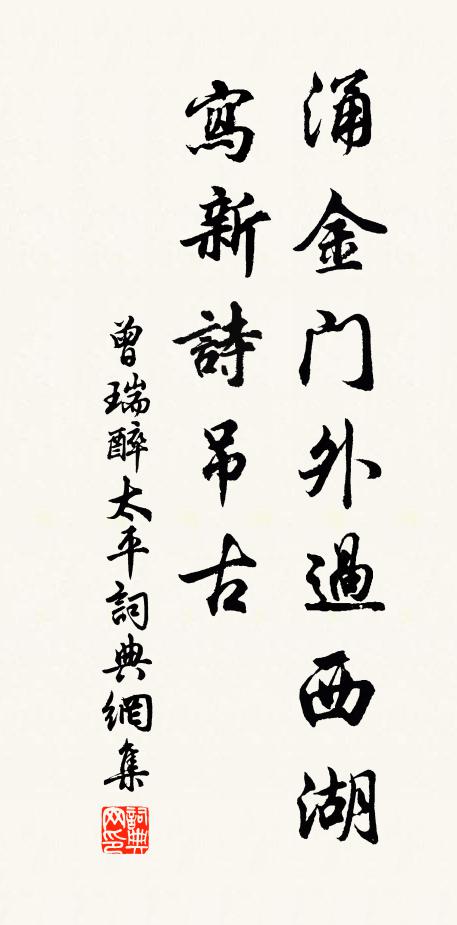 涌金门外過西湖
寫新詩吊古
曾瑞醉太平詞典網集
詞典网印